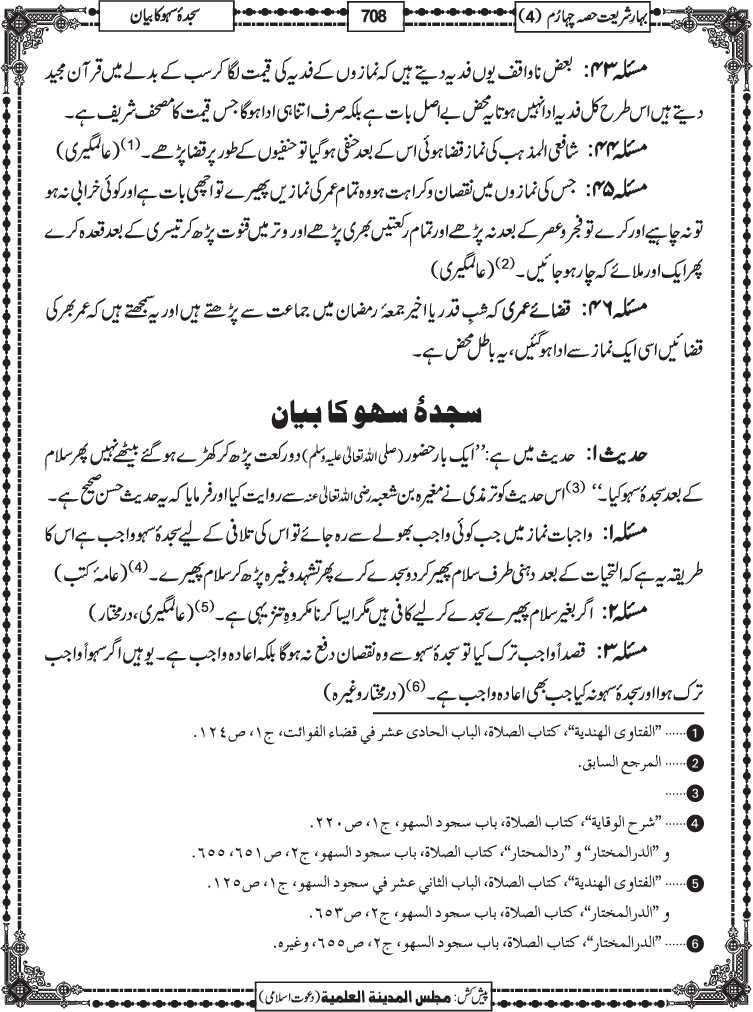 بہارِشریعت حصہ چہارم (4)
708
سجدۂ سہو کا بیان
مسئلہ ۴۳: بعض ناواقف یوں فدیہ دیتے ہیں کہ نمازوں کے فدیہ کی قیمت لگا کر سب کے بدلے میں قرآن مجید
دیتے ہیں اس طرح کل فدیہ ادا نہیں ہوتا یہ محض بے اصل بات ہے بلکہ صرف اتنا ہی ادا ہوگا جس قیمت کا مصحف شریف ہے۔
مسئلہ ۴۴: شافعی المذہب کی نماز قضا ہوئی اس کے بعد حنفی ہوگیا تو حنفیوں کے طور پر قضا پڑھے۔(1) (عالمگیری)
مسئلہ ۴۵: جس کی نمازوں میں نقصان و کراہت ہو وہ تمام عمر کی نمازیں پھیرے تو اچھی بات ہے اور کوئی خرابی نہ ہو
تو نہ چاہیے اور کرے تو فجر و عصر کے بعد نہ پڑھے اور تمام رکعتیں بھری پڑھے اور وتر میں قنوت پڑھ کر تیسری کے بعد قعدہ کرے
پھر ایک اور ملائے کہ چار ہوجائیں۔(2) (عالمگیری)
مسئلہ ۴۶: قضائے عمری کہ شبِ قدر یا اخیر جمعۂ رمضان میں جماعت سے پڑھتے ہیں اور یہ سمجھتے ہیں کہ عمر بھر کی
قضائیں اسی ایک نماز سے ادا ہوگئیں، یہ باطل محض ہے۔
سجدۂ سھو کا بیان
حدیث ۱: حدیث میں ہے: ’’ایک بار حضور (صلی اللہ تعالیٰ علیہ وسلم) دو رکعت پڑھ کر کھڑے ہوگئے بیٹھے نہیں پھر سلام
کے بعد سجدۂ سہو کیا۔‘‘ (3) اس حدیث کو ترمذی نے مغیرہ بن شعبہ رضی اللہ تعالیٰ عنہ سے روایت کیا اور فرمایا کہ یہ حدیث حسن صحیح ہے۔
مسئلہ ۱: واجبات نماز میں جب کوئی واجب بھولے سے رہ جائے تو اس کی تلافی کے لیے سجدۂ سہو واجب ہے اس کا
طریقہ یہ ہے کہ التحیات کے بعد دہنی طرف سلام پھیر کر دو سجدے کرے پھر تشہد وغیرہ پڑھ کر سلام پھیرے۔(4) (عامۂ کتب)
مسئلہ ۲: اگر بغیر سلام پھیرے سجدے کرلیے کافی ہیں مگر ایسا کرنا مکروہِ تنزیہی ہے۔(5) (عالمگیری، درمختار)
مسئلہ ۳: قصداً واجب ترک کیا تو سجدۂ سہو سے وہ نقصان دفع نہ ہوگا بلکہ اعادہ واجب ہے۔ یوہیں اگر سہواً واجب
ترک ہوا اور سجدۂ سہو نہ کیا جب بھی اعادہ واجب ہے۔(6) (درمختار وغیرہ)
1 ...... ”الفتاوی الھندیة“، کتاب الصلاة، الباب الحادی عشر في قضاء الفوائت، ج۱، ص۱۲٤.
2 ...... المرجع السابق.
3 ......
4 ...... ”شرح الوقایة“، کتاب الصلاة، باب سجود السھو، ج۱، ص۲۲۰.
و ”الدرالمختار“ و ”ردالمحتار“، کتاب الصلاة، باب سجود السھو، ج۲، ص٦٥۱، ٦٥٥.
5 ...... ”الفتاوی الھندیة“، کتاب الصلاة، الباب الثاني عشر في سجود السھو، ج۱، ص۱۲٥.
و ”الدرالمختار“، کتاب الصلاة، باب سجود السھو، ج۲، ص٦٥۳.
6 ...... ”الدرالمختار“، کتاب الصلاة، باب سجود السھو، ج۲، ص٦٥٥، وغیرہ.
پیش کش: مجلس المدینة العلمیة (دعوت اسلامی)